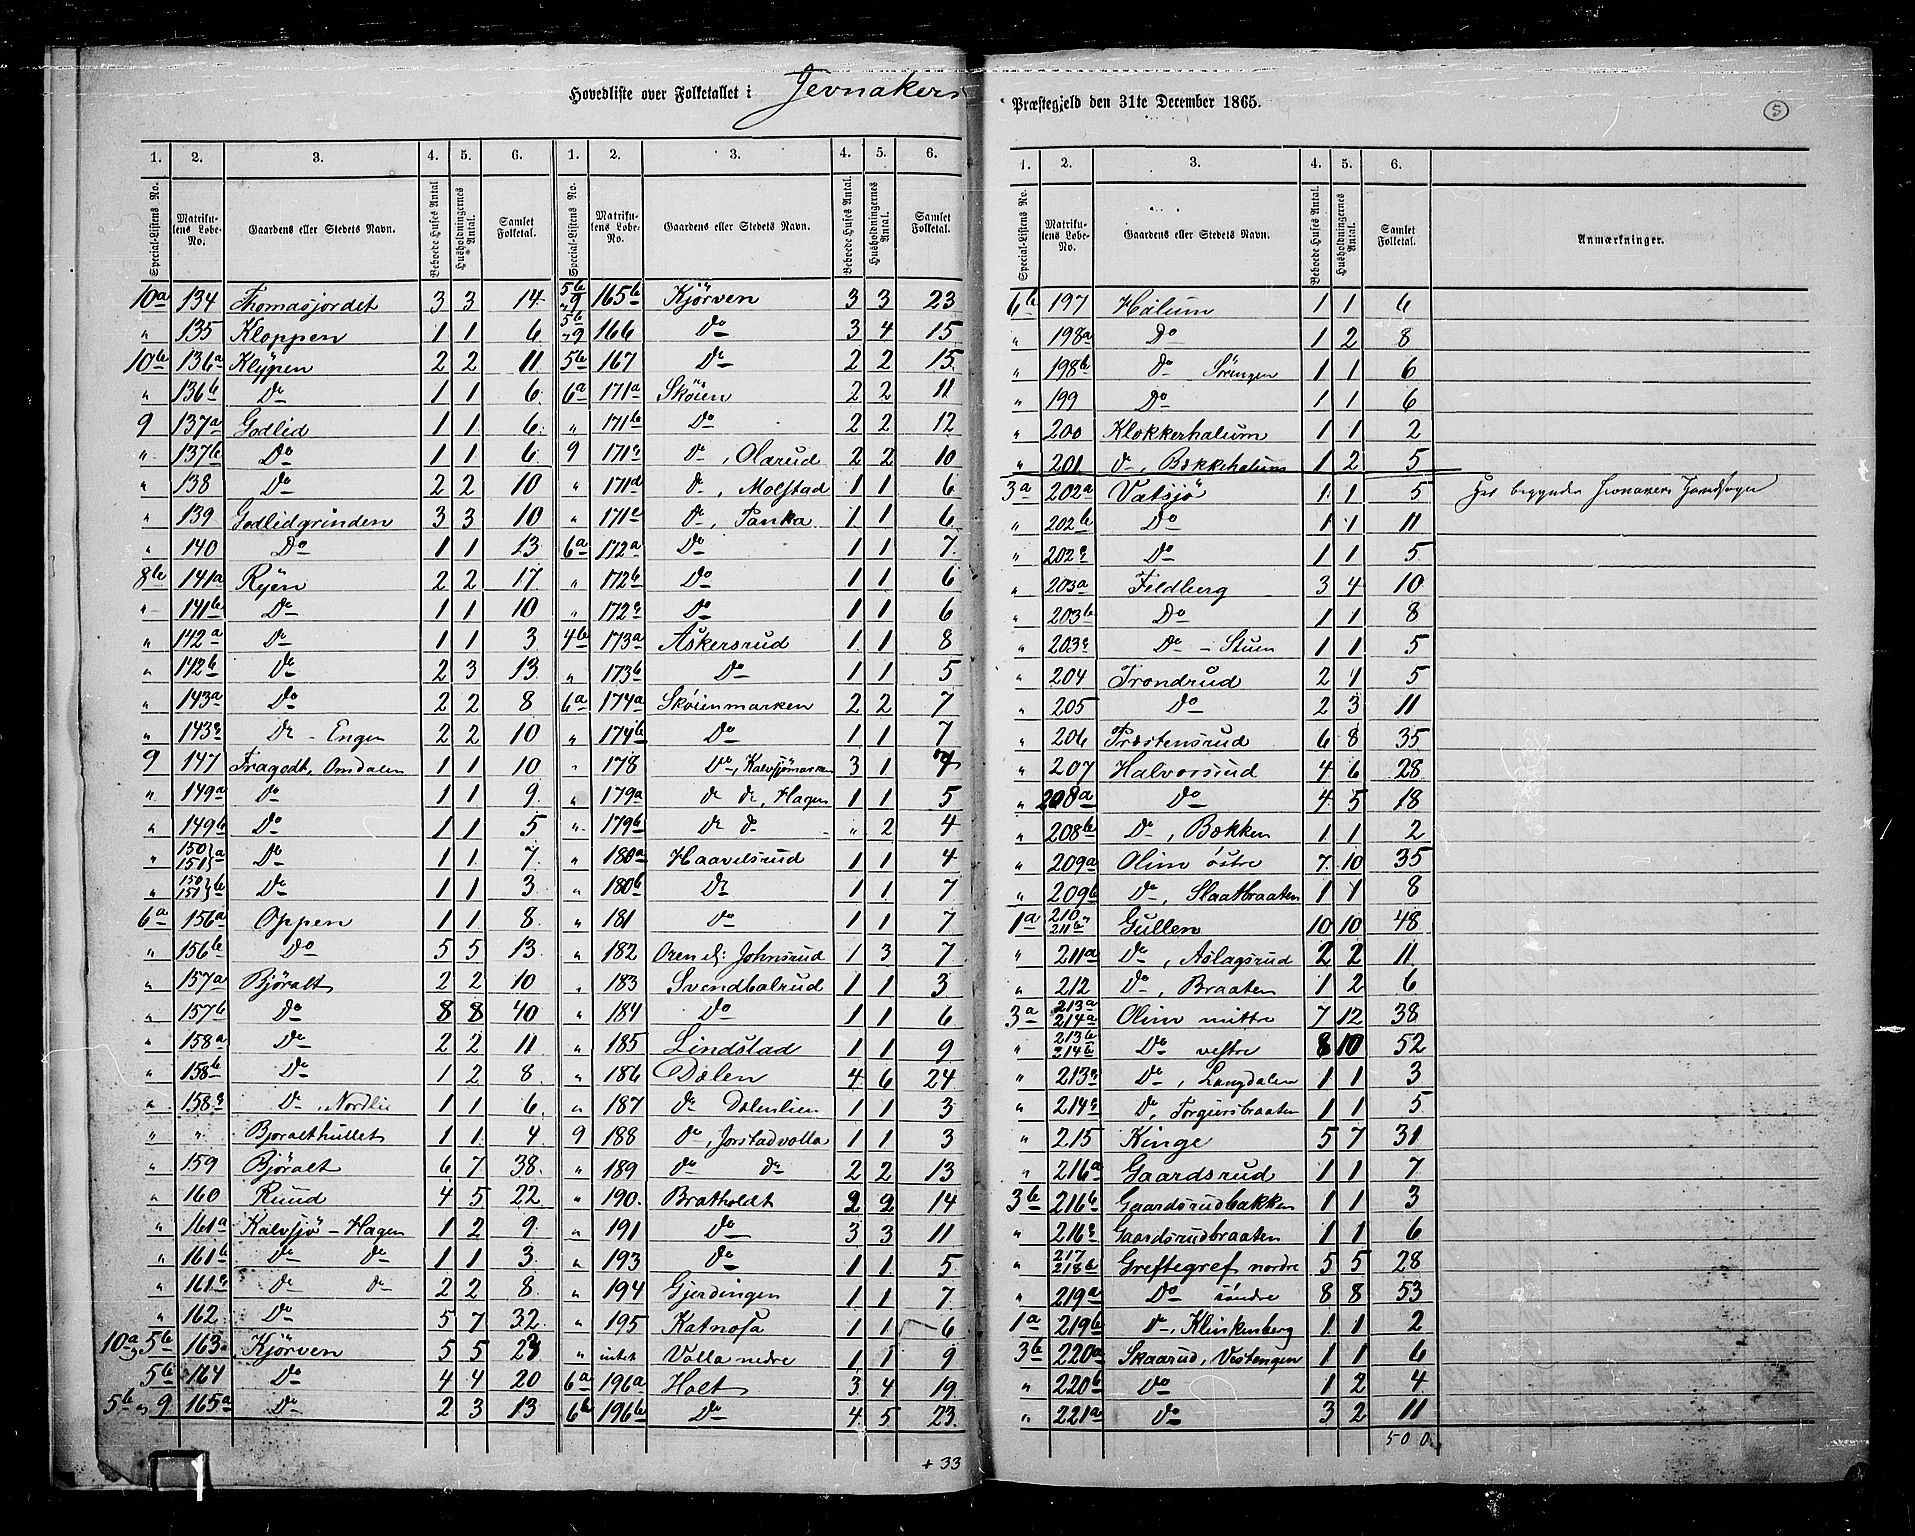 Hovedliste over Folketallet i Jevnakers Præstegjeld den 31te December 1865.
5
1. 2. 3. 4. 5. 6. 1. 2. 3. 4. 5. 6.
Special-Listens No. Matrikulens Løbe-No. Gaardens eller Stedets Navn. Beboede Huses Antal Husholdningernes Antal. Samlet Folketal. Special-Listens No. Matrikulens Løbe-No. Gaardens eller Stedets Navn. Beboede Huses Antal. Husholdningernes Antal. Samlet Folketal.
10a 134 Thomasjordet 3 3 14
" 135 Kloppen 1 1 6
10b 136a Klypen 2 2 11
" 136b Do 1 1 6
9 137a Godlid 1 1 6
" 137b Do 1 1 6
" 138 Do 2 2 10
" 139 Godlidgrinden 3 3 10
" 140 Do 1 1 13
8b 141a Ryen 2 2 17
" 141b Do 1 1 10
" 142a Do 1 1 3
" 142b Do 2 3 13
" 143a Do 2 2 8
" 143c Do - Engen 2 2 10
9 147 Fragodt, Omdalen 1 1 10
" 149a Do 1 1 9
" 149b Do 1 1 5
" 150 151 }a Do 1 1 7
" 150 151 }b Do 1 1 3
6a 156a Oppen 1 1 8
" 156b Do 5 5 13
" 157a Björalt 2 2 10
" 157b Do 8 8 40
" 158a Do 2 2 11
" 158b Do 1 2 8
" 158c Do, Nordlie 1 1 6
" " Bjoralthullet 1 1 4
" 159 Björalt 6 7 38
" 160 Ruud 4 5 22
" 161a Kalvsjö - Hagen 1 2 9
" 161b Do Do 1 1 3
" 161c Do Do 2 2 8
" 162 Do 5 7 32
10a, 5b 163 Kjörven 5 5 23
5b 164 Do 4 4 20
5b, 9 165a Do 2 3 13
5b, 9 165b Kjörven 3 3 23
5b, 9 166 Do 3 4 15
5b 167 Do 2 2 15
6a 171a Sköien 2 2 11
" 171b Do 2 2 12
9 171c Do, Olarud 2 2 10
" 171d Do, Molstad 1 1 6
" 171e Do, Tanka 1 1 6
6a 172a Do 1 1 7
" 172b Do 1 1 6
" 172c Do 1 1 6
4b 173a Askersrud 1 1 8
" 173b Do 1 1 5
6a 174a Sköienmarken 2 2 7
" 174b Do 1 1 7
" 178 Do, Kalvsjömarken 3 1
" 179a Do Do, Hagen 1 1 5
" 179b Do Do " 2 4
" 180a Haavelsrud 1 1 4
" 180b Do 1 1 7
" 181 Do 1 1 7
" 182 Oren el: Johnsrud 1 3 7
" 183 Svendbalrud 1 1 3
" 184 Do 1 1 6
" 185 Lindstad 1 1 9
" 186 Dølen 4 6 24
" 187 Do Dølenlien 1 1 3
9 188 Do, Jorstadvolla 1 1 3
" 189 Do Do 2 2 13
" 190 Bratholdt 2 2 14
" 191 Do 3 3 11
" 193 Do 1 1 5
" 194 Gjerdingen 1 1 7
" 195 Katnosa 1 1 6
" intet Volla nedre 1 1 9
6a 196a Holt 3 4 19
6b 196b Do 4 5 23
+ 33
1. 2. 3. 4. 5. 6.
Special-Listens No. Matrikulens Løbe-No. Gaardens eller Stedets Navn. Beboede Huses Antal. Husholdningernes Antal. Samlet Folketal. Anmærkninger.
6b 197 Hålum 1 1 6
" 198a Do 1 2 8
" 198b Do Sörengen 1 1 6
" 199 Do 1 1 6
" 200 Klokkerhalum 1 1 2
" 201 Do, Bækkehalum 1 2 5
3a 202a Vatsjö 1 1 5 Her begynder Jevnakers Hovedsogn
" 202b Do 1 1 11
" 202c Do 1 1 5
" 203a Fildberg 3 4 10
" 203b Do 1 1 8
" 203c Do - Stuen 1 1 5
" 204 Trondrud 2 1 5
" 205 Do 2 3 11
" 206 Prestensrud 6 8 35
" 207 Halvorsrud 4 6 28
" 208a Do 4 5 18
" 208b Do, Bækken 1 1 2
" 209a Olim östre 7 10 35
" 209b Do, Slaatbraaten 1 1 8
1a 210 211b Gullen 10 10 48
" 211a Do, Aslagsrud 2 2 11
" 212 Do, Braaten 1 2 6
3a 213a 214a Olim mittre 7 12 38
" 213b 214b Do vestre 8 10 52
" 213c Do, Langdalen 1 1 3
" 214c Do, Torgersbraaten 1 1 5
" 215 Kinge 5 7 31
" 216a Gaardsrud 1 1 7
3b 216b Gaardsrudbakken 1 1 3
" 216c Gaardsrudbraaten 1 1 6
" 217 218b Greftegref nordre 5 5 28
" 219a Do söndre 8 8 53
1a 219b Do, Klinkenberg 1 1 2
3b 220a Skaarud, Vestengen 1 1 6
" 220b Do 1 2 4
" 221a Do 3 2 11
500